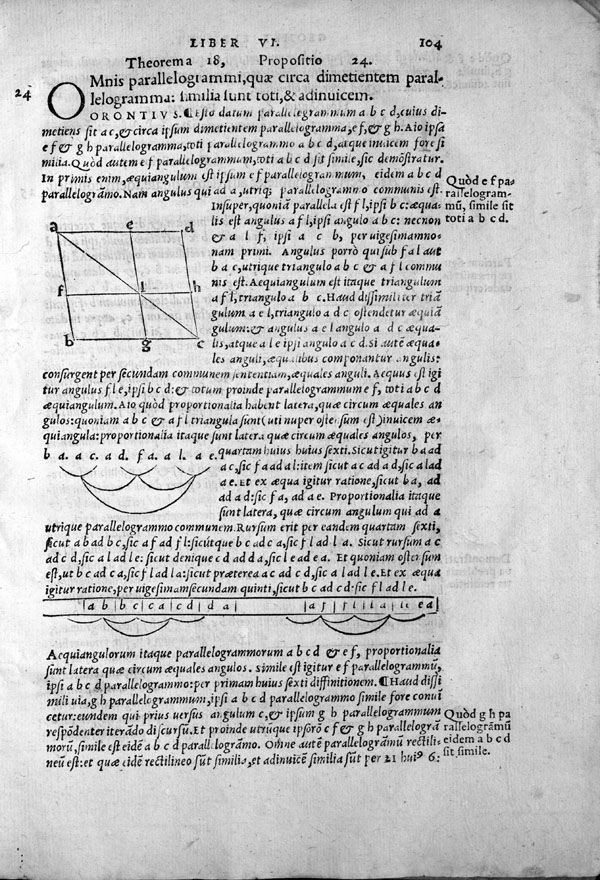 LIBER VI. 104
Theorema 18, Propositio 24.
24
OMnis parallelogrammi, quæ circa dimetientem paral-
lelogramma: similia sunt toti, & adinuicem.
ORONTIVS. ¶Esto datum parallelogrammum a b c d, cuius di-
metiens sit a c, & circa ipsum dimetientem parallelogramma, e f, & g h. Aio ipsa
e f & g h parallelogramma, toti parallelogrammo a b c d, atque inuicem fore si
milia. Quòd autem e f parallelogrammum, toti a b c d sit simile, sic demõstratur.
In primis enim, æquiangulum est ipsum e f parallelogrammum, eidem a b c d
parallelogrãmo. Nam angulus qui ad a, utriq; parallelogrammo communis est.
Quòd e f pa-
rallelogram-
mũ, simile sit
toti a b c d.
Insuper, quoniã parallela est f l, ipsi b c: æqua-
lis est angulus a f l, ipsi angulo a b c: necnon
& a l f, ipsi a c b, per uigesimamno-
nam primi. Angulus porrò qui sub f a l aut
b a c, utrique triangulo a b c & a f l commu
nis est. Aequiangulum est itaque triangulum
a f l, triangulo a b c. Haud dissimiliter triã
gulum a e l, triangulo a d c ostendetur æquiã
gulum: & angulus a e l angulo a d c æqua-
lis, atque a l e ipsi angulo a c d. Si autẽ æqua-
les anguli, æqualibus componantur angulis:
a e d
f l h
b g c
consurgent per secundam communem sententiam, æquales anguli. Aequus est igi
tur angulus f l e, ipsi b c d: & totum proinde parallelogrammum e f, toti a b c d
æquiangulum. Aio quòd proportionalia habent latera, quæ circum æquales an
gulos: quoniam a b c & a f l triangula sunt (uti nuper ostẽsum est) inuicem æ-
quiangula: proportionalia itaque sunt latera quæ circum æquales angulos, per
b a. a c. a d. f a. a l. a e.
quartam huius huius sexti. Sicut igitur b a ad
a c, sic f a ad a l: item sicut a c ad a d, sic a l ad
a e. Et ex æqua igitur ratione, sicut b a, ad
ad a d: sic f a, ad a e. Proportionalia itaque
sunt latera, quæ circum angulum qui ad a
utrique parallelogrammo communem. Rursum erit per eandem quartam sexti,
sicut a b ad b c, sic a f ad f l: sicútque b c ad c a, sic f l ad l a. Sicut rursum a c
ad c d, sic a l ad l e: sicut denique c d ad d a, sic l e ad e a. Et quoniam ostensum
est, ut b c ad c a, sic f l ad l a: sicut præterea a c ad c d, sic a l ad l e. Et ex æqua
igitur ratione, per uigesimamsecundam quinti, sicut b c ad c d: sic f l ad l e.
a b | b c | c a | c d | d a | a f | f l | l a | l e | e a
Aequiangulorum itaque parallelogrammorum a b c d & e f, proportionalia
sunt latera quæ circum æquales angulos. simile est igitur e f parallelogrammũ,
ipsi a b c d parallelogrammo: per primam huius sexti diffinitionem. ¶Haud dissi
mili uia, g h parallelogrammum, ipsi a b c d parallelogrammo simile fore conuĩ
cetur: eundem qui prius uersus angulum c, & ipsum g h parallelogrammum
respõdenter iterãdo discursũ. Et proinde utrũque ipsorũ e f & g h parallelogrã
morũ, simile est eidẽ a b c d parallelogrãmo. Omne autẽ parallelogrãmũ rectili-
neũ est: et quæ eidẽ rectilineo sũt similia, et adinuicẽ similia sũt per 21 huiꝰ 6:
Quòd g h pa
rallelogrãmũ
eidem a b c d
sit simile.